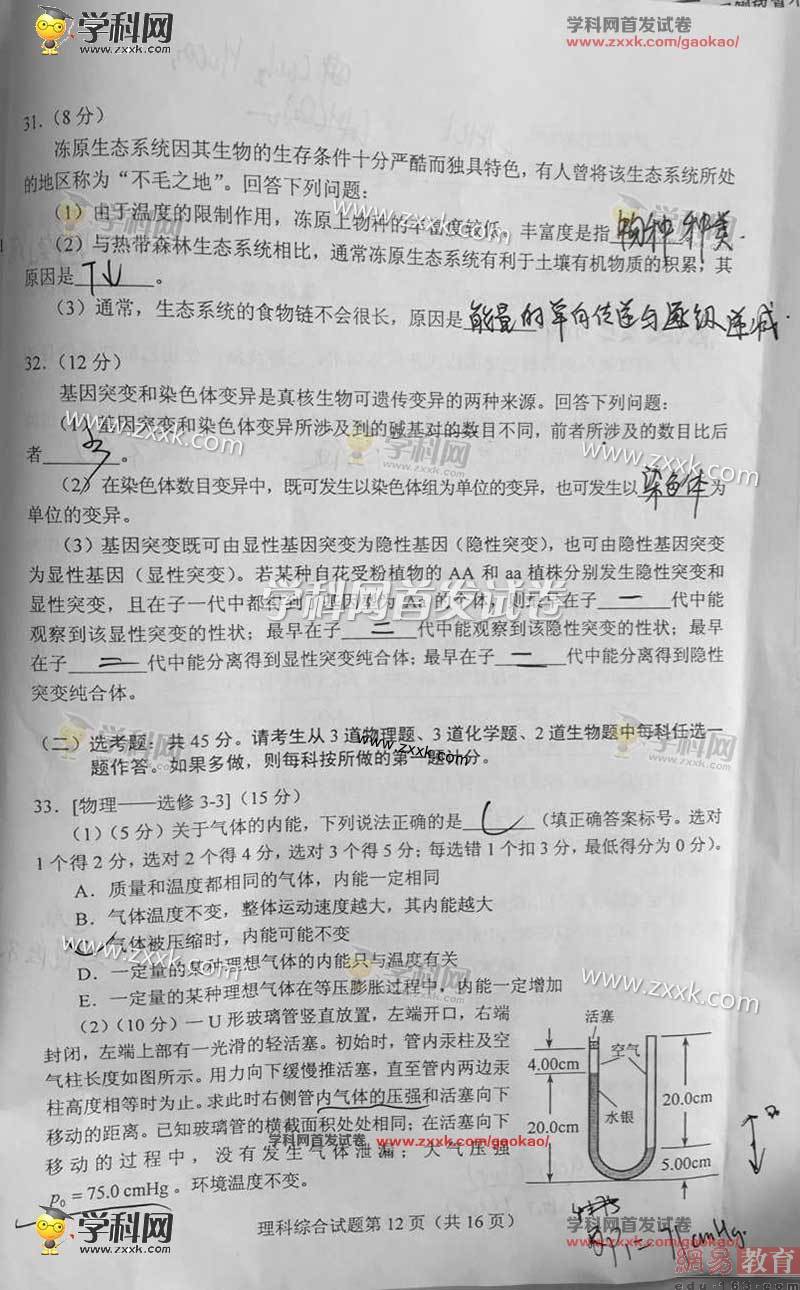 学科网
www.zxxk.com
学科网首发试卷
www.zxxk.com/gaokao/
31.（8 分）
冻原生态系统因其生物的生存条件十分严酷而独具特色，有人曾将该生态系统所处
的地区称为“不毛之地”。回答下列问题：
（1）由于温度的限制作用，冻原上物种的丰富度较低。丰富度是指 物种种类
（2）与热带森林生态系统相比，通常冻原生态系统有利于土壤有机物质的积累，其
原因是 T↓ 。
（3）通常，生态系统的食物链不会很长，原因是 能量的单向传递与逐级递减.
32.（12 分）
基因突变和染色体变异是真核生物可遗传变异的两种来源。回答下列问题：
（1）基因突变和染色体变异所涉及到的碱基对的数目不同，前者所涉及的数目比后
者 。
www.zxxk.com
学科网
www.zxxk.com
（2）在染色体数目变异中，既可发生以染色体组为单位的变异，也可发生以 染色体 为
单位的变异。
（3）基因突变既可由显性基因突变为隐性基因（隐性突变），也可由隐性基因突变
为显性基因（显性突变）。若某种自花受粉植物的 AA 和 aa 植株分别发生隐性突变和
显性突变，且在子一代中都得到了基因型为 Aa 的个体，则最早在子 一 代中能
学科网首发试卷
观察到该显性突变的性状；最早在子 二 代中能观察到该隐性突变的性状；最早
在子 二 代中能分离得到显性突变纯合体；最早在子 二 代中能分离得到隐性
突变纯合体。
（二）选考题：共 45 分。请考生从 3 道物理题、3 道化学题、2 道生物题中每科任选一
www.zxxk.com
题作答。如果多做，则每科按所做的第一题计分。
33．[物理——选修 3-3]（15 分）
（1）（5 分）关于气体的内能，下列说法正确的是 （填正确答案标号。选对
1 个得 2 分，选对 2 个得 4 分，选对 3 个得 5 分；每选错 1 个扣 3 分，最低得分为 0 分）。
A．质量和温度都相同的气体，内能一定相同
B．气体温度不变，整体运动速度越大，其内能越大
气体被压缩时，内能可能不变
D．一定量的某种理想气体的内能只与温度有关
E．一定量的某种理想气体在等压膨胀过程中，内能一定增加
www.zxxk.com
学科网
www.zxxk.com
（2）（10 分）一 U 形玻璃管竖直放置，左端开口，右端
封闭，左端上部有一光滑的轻活塞。初始时，管内汞柱及空
气柱长度如图所示。用力向下缓慢推活塞，直至管内两边汞
柱高度相等时为止。求此时右侧管内气体的压强和活塞向下
移动的距离。已知玻璃管的横截面积处处相同；在活塞向下
移动的过程中，没有发生气体泄漏；大气压强
p₀ = 75.0 cmHg。环境温度不变。
活塞
空气
4.00cm
水银
20.0cm
20.0cm
5.00cm
学科网首发试卷
www.zxxk.com/gaokao/
理科综合试题第 12 页（共 16 页）
学科网
www.zxxk.com
網易 教育
edu.163.com